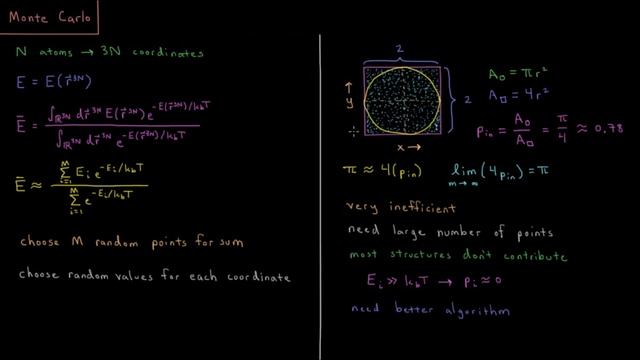 Monte Carlo
N atoms → 3N coordinates
E = E(r⃗³ᴺ)
Ē = ∫ℝ³ᴺ dr⃗³ᴺ E(r⃗³ᴺ) e^(-E(r⃗³ᴺ)/k_bT) / ∫ℝ³ᴺ dr⃗³ᴺ e^(-E(r⃗³ᴺ)/k_bT)
Ē ≈ Σ_{i=1}^{M} E_i e^(-E_i/k_bT) / Σ_{i=1}^{M} e^(-E_i/k_bT)
choose M random points for sum
choose random values for each coordinate
2
2
↑
y
x →
A_○ = πr²
A_□ = 4r²
p_in = A_○/A_□ = π/4 ≈ 0.78
π ≈ 4(p_in)
lim_{m→∞} (4p_in) = π
very inefficient
need large number of points
most structures don't contribute
E_i ≫ k_bT → p_i ≈ 0
need better algorithm